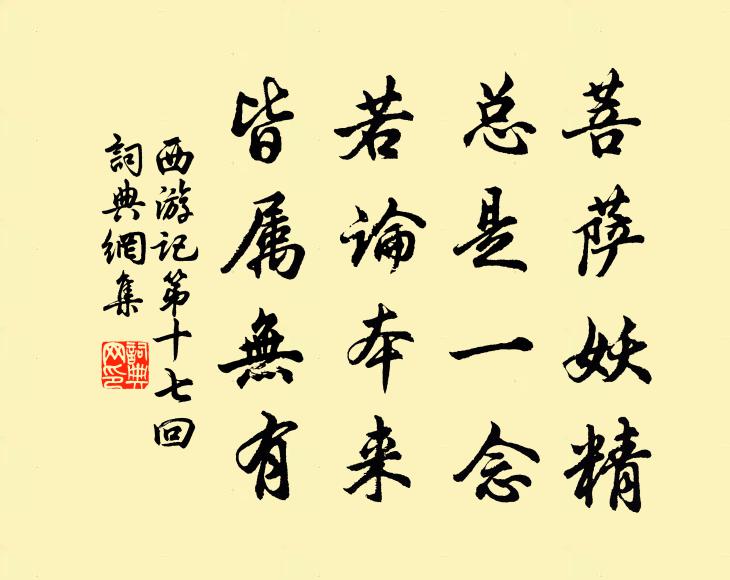 菩萨妖精
总是一念
若論本来
皆属無有
西游记第十七回
詞典網集
詞典
网印